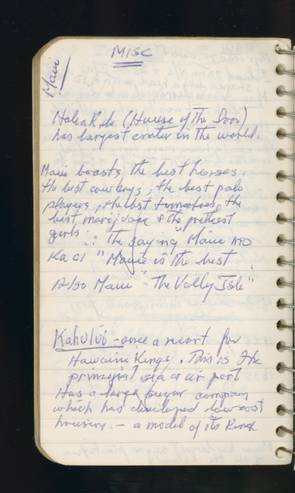 MISC
Maui
Haleak'la (House of The Sun)
has largest crater in the world.
Maui boasts the best horses,
the best cowboys, the best polo
players, the best tomatoes, the
best marijuana & the prettest
girls ∴ The saying "Maui no
Ka oi" "Maui is the best
Also Maui - "The Vally Isle"
Kahului - once a resort for
Hawaiin Kings. This is the
principal sea & air port
Has a large sugar company
which has developed low cost
housing. - a model of its kind